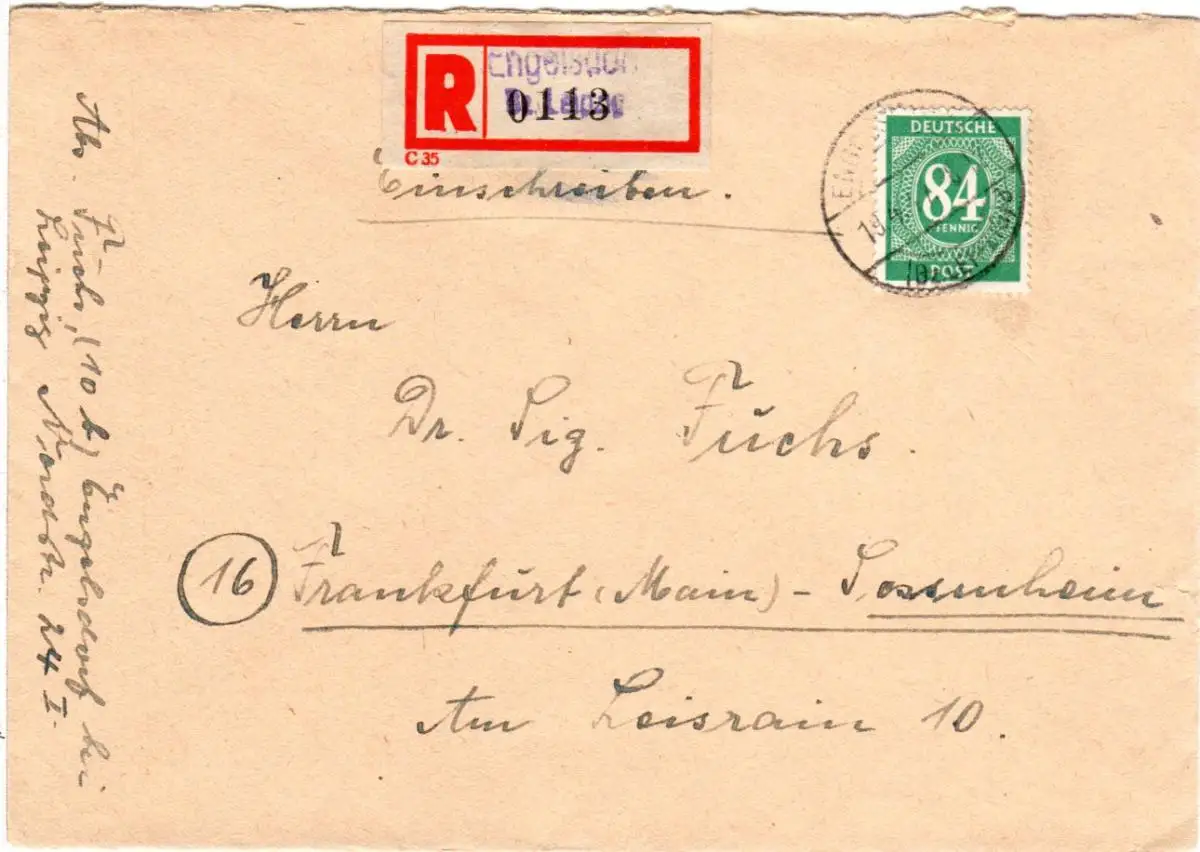 R
Engelsdorf
0113
C 35
Einschreiben.
DEUTSCHE
84
PFENNIG
POST
Herrn
Dr. Sig. Fuchs.
16 Frankfurt (Main) - Sossenheim
Am Leisrain 10.
Abs. Fuchs, (10b) Engelsdorf bei
Leipzig Nordstr. 24 I.